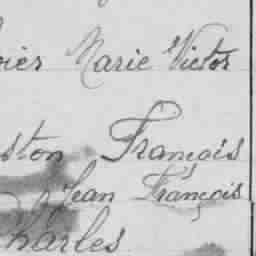 oiès Marie Victor
ston François
Jean François
Charles